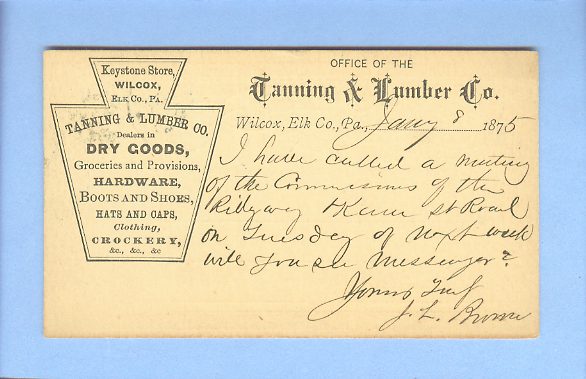 Keystone Store,
WILCOX,
ELK CO., PA.
TANNING & LUMBER CO.
Dealers in
DRY GOODS,
Groceries and Provisions,
HARDWARE,
BOOTS AND SHOES,
HATS AND CAPS,
Clothing,
CROCKERY,
&c., &c., &c
OFFICE OF THE
Tanning & Lumber Co.
Wilcox, Elk Co., Pa., Jany 8 1875
I have called a meeting
of the Commissioners of the
Ridgway & St Road
on Tuesday of next week
will you see Messenger?
Yours Truly
J. L. Brown